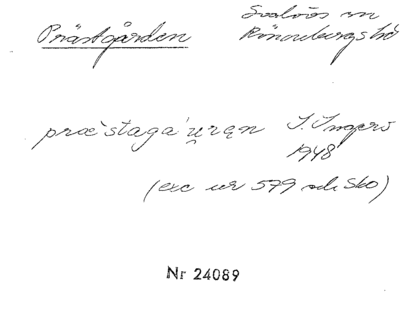 Prästgården
Svalövs sn
Rönnebergs hd
præ`staga´ɹ̣rən I. Ingers
1948
(exc ur 579 sid. 560)
Nr 24089